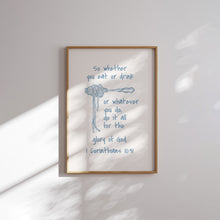 So whether
you eat or drink
or whatever
you do,
do it all
for the
glory of God.
1 Corinthians 10:31